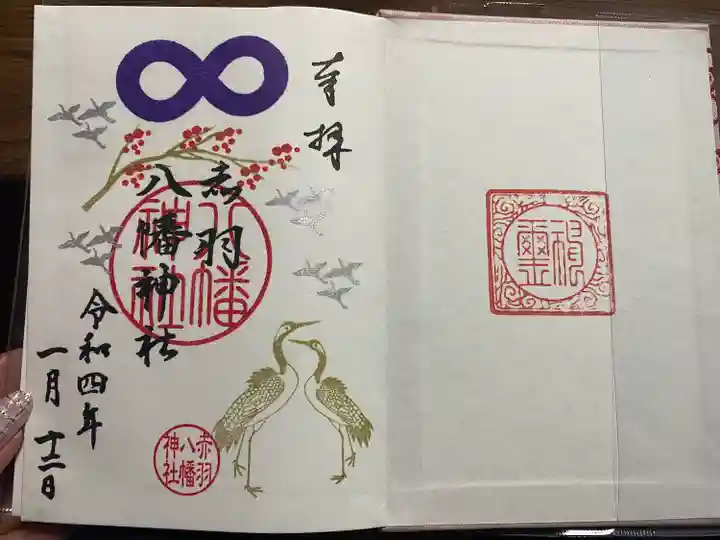 奉拝
赤羽
八幡神社
八幡
神社
令和四年
一月十二日
赤羽
八幡
神社